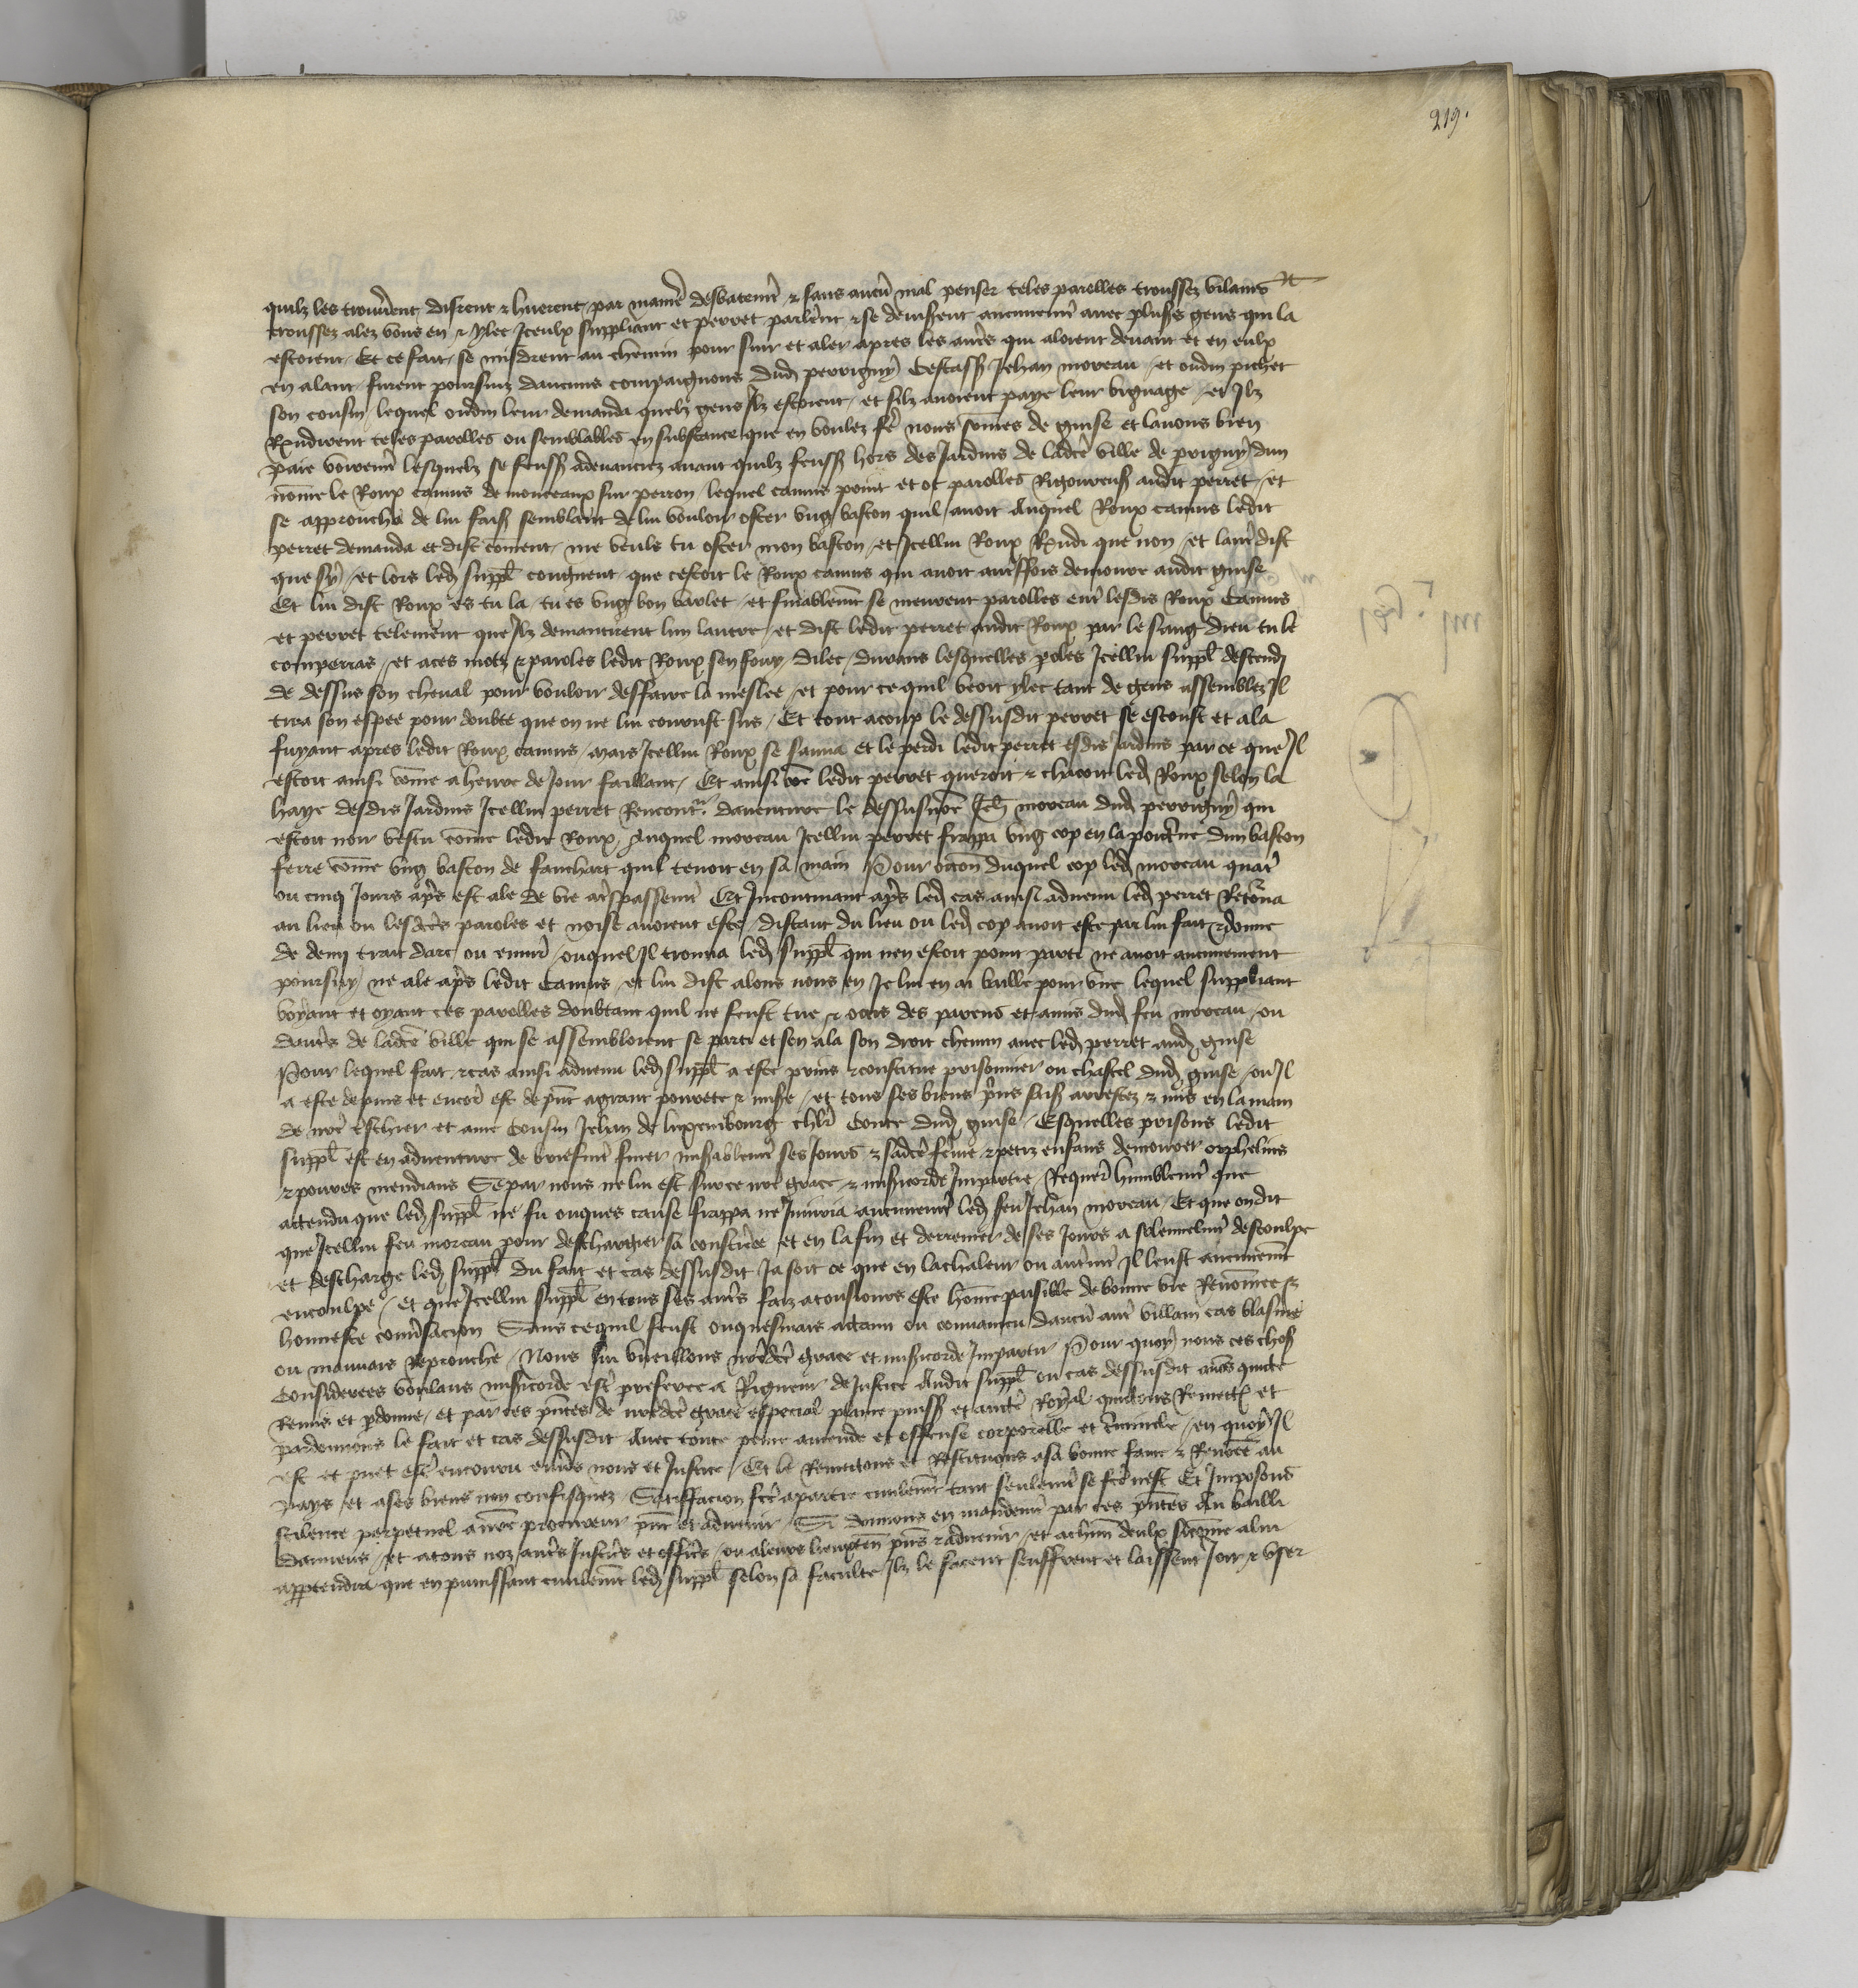 219.
quilz les trouverent disrent et huerent par maniē desbatemt̄ & sans aucū mal penser teles parolles troussez vilains
troussez alez vous en & ylec Iceulx suppliant et perret parlerēt & se deviserent aucunemt̄ avec plus̄s gens qui la
estoient Et ce fait se misdrent au chemin pour suir et aler apres les aut̄s qui aloient devant et en eulx
en alant furent poursuiz daucuns compaignons dud perrigny Cestass Jehan moreau et oudin pichet
son cousin lequel oudin leur demanda quelz gens Ilz estoient et silz avoient paye leur vignage et Ilz
Rn̄dirent teles parolles ou semblables en substance que en voulez fē nous som̄es de guise et lavons bien
paie voiremt̄ lesquelz se feuss advanciez avant quilz feuss hors des Jardins de ladcē ville de prigny dun
nom̄e le Roux camus de monceaux sur perron lequel camus point et ot parolles Rigoureuss audit perret et
se approucha de lui fais semblant de lui vouloir oster ung baston quil avoit Auquel Roux camus ledit
perret demanda et dist com̄ent me veulz tu oster mon baston et Icellui Roux Rn̄di que non et laut̄ dist
que sy et lors led suppl̄ congneut que cestoit le Roux camus qui avoit aut̄ffois demoure audit guise
Et lui dist Roux es tu la tu es ung bon varlet et finablemt̄ se meurent parolles ent̄ lesdis Roux Camus
et perret telement que Ilz demantirent lun lautre et dist ledit perret audit Roux par le sang dieu tu le
comperras et a ces motz & paroles ledit Roux sen fouy dilec durans lesquelles p̄oles Icellui suppl̄ descendi
de dessus son cheval pour vouloir deffaire la meslee et pour ce quil veoit ylec tant de gens assemblez Il
tira son espee pour doubte que on ne lui courust sus Et tout acoup le dessusdit perret se escoust et ala
fuyant apres ledit Roux camus mais Icellui Roux se sauva et le perdi ledit perret esdis Jardins par ce que Il
estoit ainsi com̄e a heure de Jour faillant Et ainsi que ledit perret queroit & chacoit led Roux selon la
haye desdis Jardins Icellui perret Rencontra daventure le dessus nōe Jeh moreau dud perrigny qui
estoit noir vestu com̄e ledit Roux Auquel moreau Icellui perret frappa ung cop en la poitrine dun baston
ferre com̄e ung baston de fauchart quil tenoit en sa main Pour occōn duquel cop led moreau quat̄
ou cinq Jours ap̄s est ale de vie a t̄spassemt̄ Et Incontinant ap̄s led cas ainsi advenu led perret Retōna
au lieu ou lesdcēs paroles et noise avoient este distant du lieu ou led cop avoit este par lui fait & donne
de demy trait darc ou envirō ouquel Il trouva led suppl̄ qui nen estoit point parti ne avoit aucunement
poursuy ne ale ap̄s ledit Camus et lui dist alons nous en Je lui en ai baille pour une lequel suppliant
voyant et oyant ces parolles doubtant quil ne feust tue & occis des parens et amis dud feu moreau ou
daut̄s de ladcē ville qui se assembloient se parti et sen ala son droit chemin avec led perret aud guise
Pour lequel fait & cas ainsi advenu led suppl̄ a este prins & constitue prisonnier ou chastel dud guise ou Il
a este depuis et encorē est de p̄nt a grant povrete & misē et tous ses biens p̄ns sais arrestez & mis en la main
de nr̄e treschier et ame Cousin Jehan de luxembourg chlr̄ Conte dud guise Esquelles prisons ledit
suppl̄ est en adventure de briefmt̄ finer misablemt̄ ses Jours & sadcē fem̄e & petiz enfans demourer orphelins
& povres mendians Se par nous ne lui est sur ce nr̄e grace & mis̄icorde Impartie Requerāt humblemt̄ que
attendu que led suppl̄ ne fu onques cause frappa ne Iniuria aucunemt̄ led feu Jehan moreau Et que on dit
que Icellui feu moreau pour deschargier sa consciēce et en la fin et derrenier de ses Jours a solennelmt̄ descoulpe
et descharge led suppl̄ du fait et cas dessusdit Ja soit ce que en la chaleur ou aut̄mt̄ Il leust aucunemt̄
encoulpe Et que Icellui suppl̄ en tous ses aut̄s faiz a tousiours este hom̄e paisible de bonne vie Renom̄ee &
honneste conv̄sacion Sans ce quil feust onquesmais attaint ou convaincu daucū aut̄ villain cas blasme
ou mauvais Reprouche Nous lui vueillons nr̄edcē grace et mis̄icorde Impartir Pour quoy nous ces choss
Considerees voulans mis̄icorde estr̄ preferee a Rigueur de Justice Audit suppl̄ ou cas dessusdit avōs quicte
Remis et p̄donne et par ces p̄ntes de nr̄edcē grace especial plaine puiss et auctē Royal quictons Remettōs et
pardonnons le fait et cas dessusdit Avec toute peine amende et offense corporelle et criminele en quoy Il
est et puet estr̄ encouru envs nous et Justice Et le Remettons et Restituons a sa bonne fame & Renom̄ee au
pays et a ses biens non confisquez Satisfacion fcē a partie civilemt̄ tant seulemt̄ se fcē nest Et Imposons
scilence perpetuel a nr̄e procureur p̄nt et advenir Si donnons en mandemt̄ par ces p̄ntes Au bailli
Damiens et a tous noz aut̄s Justic̄s et offic̄s ou a leurs lieuxten̄ p̄ns & advenir et a ch̄un deulx sicom̄e a lui
appartendra que en punissant civilemt̄ led suppl̄ selon sa faculte Ilz le facent seuffrent et laissent Joir & user